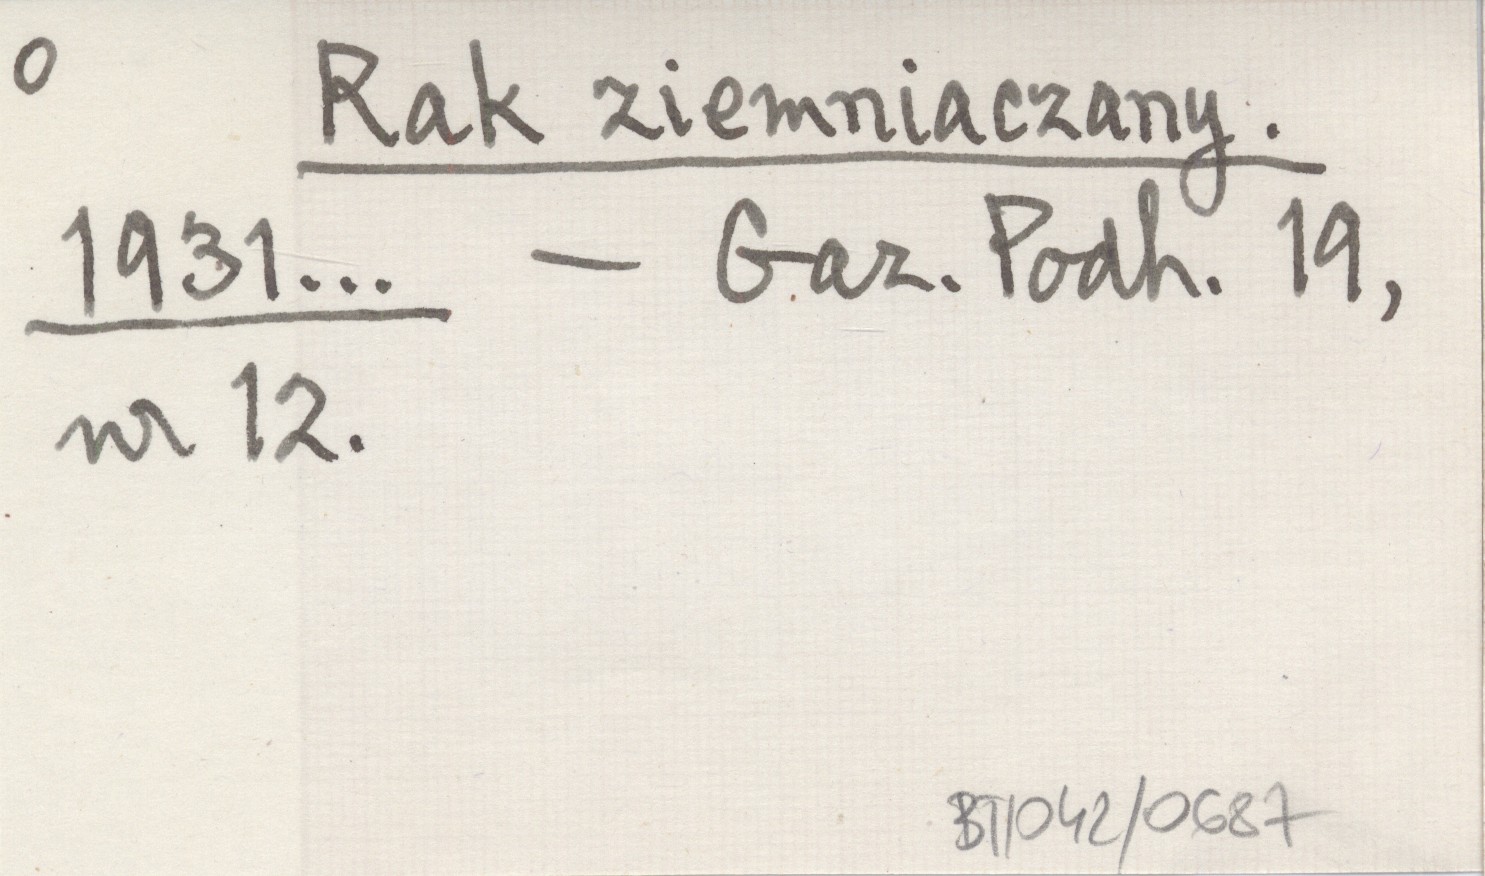 o
Rak ziemniaczany.
1931... — Gaz. Podh. 19,
nr 12.
BT/042/0687